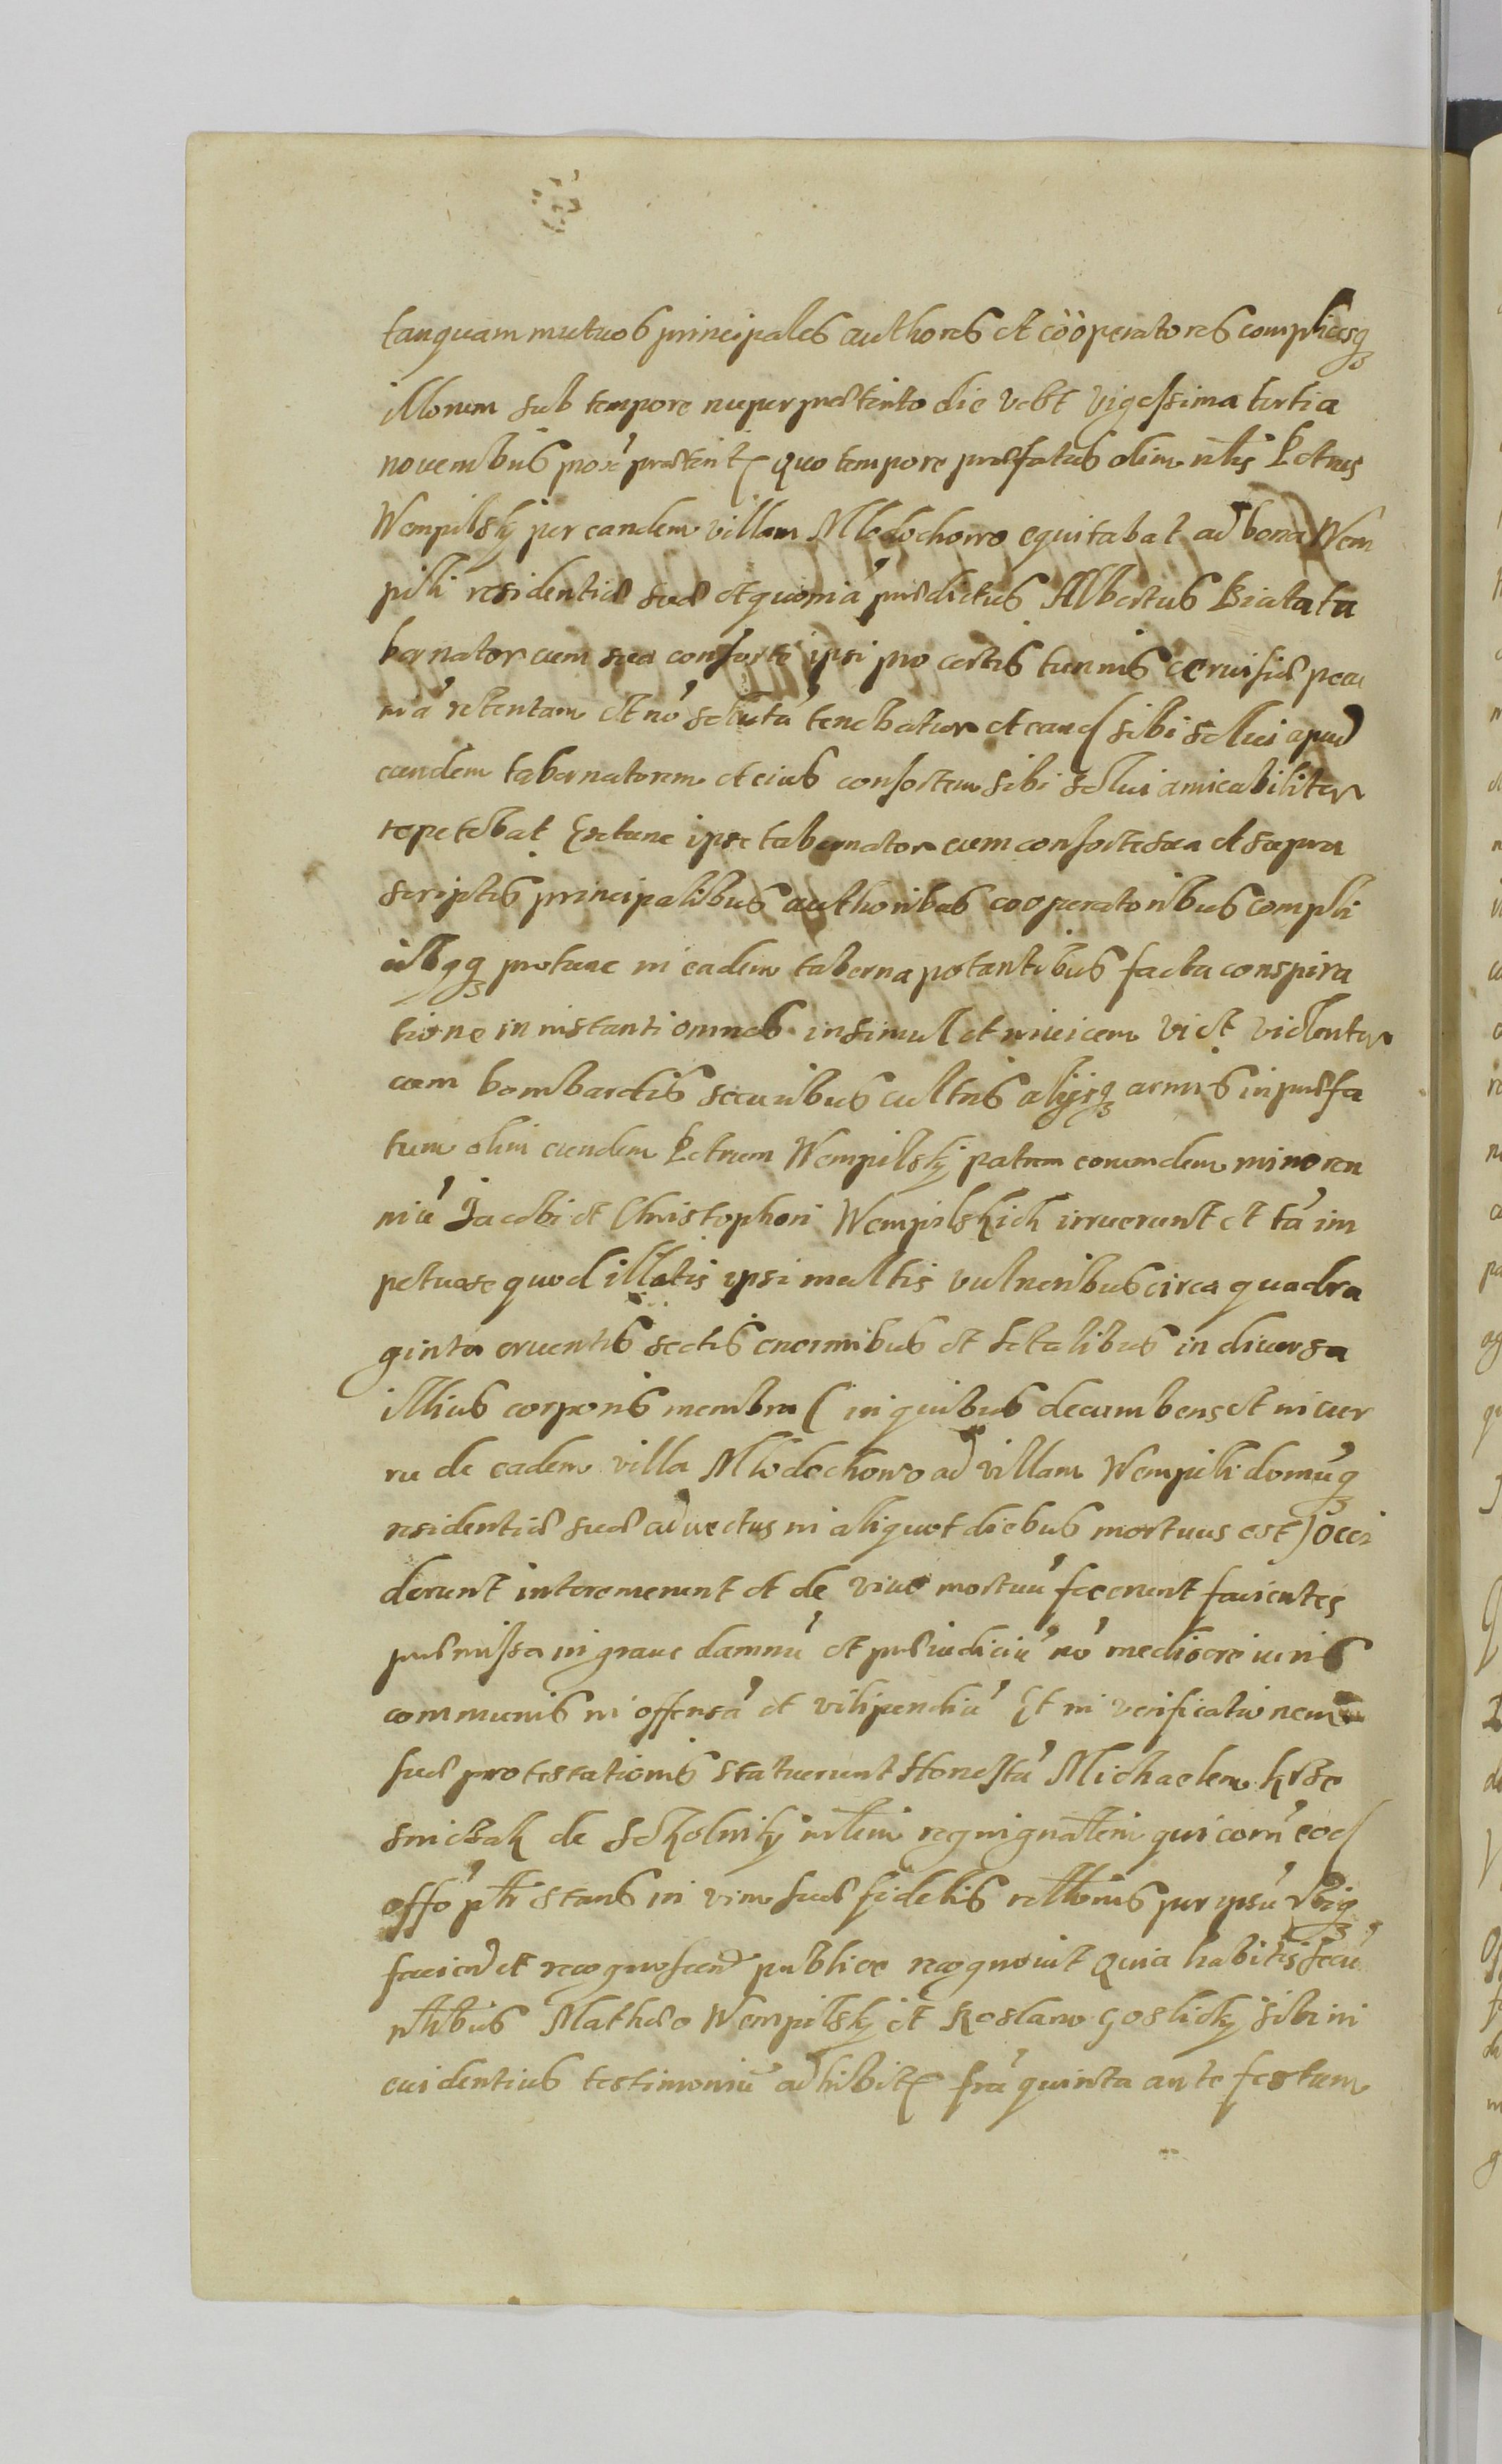 tanquam mutuos principales authores et cööperatores complicesq₃
illorum sub tempore nuper præterito die vebt vigessima tertia
nouembris præterit quo tempore præfatus olim nlis Petrus
Wempilsky per eandem villam Mlodochowo equitabat ad bona Wem
pili residentiæ suæ et quoniā prædictus Albertus Biala ta
bernator cum sua consorte ipsi pro certis tunnis ceruisiæ pecu
niā retentam et nō solutā tenebatur et eand sibi solui apud
eundem tabernatorem et eius consortem sibi solui amicabiliter
repetebat Extunc ipse tabernator cum consorte sua et supra
scriptis principalibus authoribus cooperatoribus compli
cibusq₃ protunc in eadem taberna potantibus facta conspira
tione in instanti omnes insimul et inuicem violenter
cum bombardis securibus cultris alijsq₃ armis in præfa
tum olim eundem Petrum Wempilsky patrem eorundem minoren
niū Jacobi et Christophori Wempilskich irruerunt et tā im
petuose quod illatis ipsi multis vulneribus circa quadra
ginta cruentis sectis enormibus et letalibus in diuersa
illius corporis membra ( in quibus decumbens et in cur
ru de eadem villa Mlodochowo ad villam Wempili domūq₃
residentiæ suæ aduectus in aliquot diebus mortuus est ) occi
derunt interemerunt et de viuo mortuū fecerunt facientes
præmissa in graue damnū et præiudiciū nō mediocre iuris
communis in offensā et vilipendiū Et in verificationem
suæ protestationis statuerunt Honestū Michaelem
de ministerialem regni gnalem qui corā eod
offo pntr stans in vim suæ fidelis rellonis per ipsū
faciend et recognoscend publice recognouit Quia habitis secū
nlibus Mathæo Wempilsky et Roslano Goslicky sibi in
euidentius testimoniū adhibit fria quinta ante festum